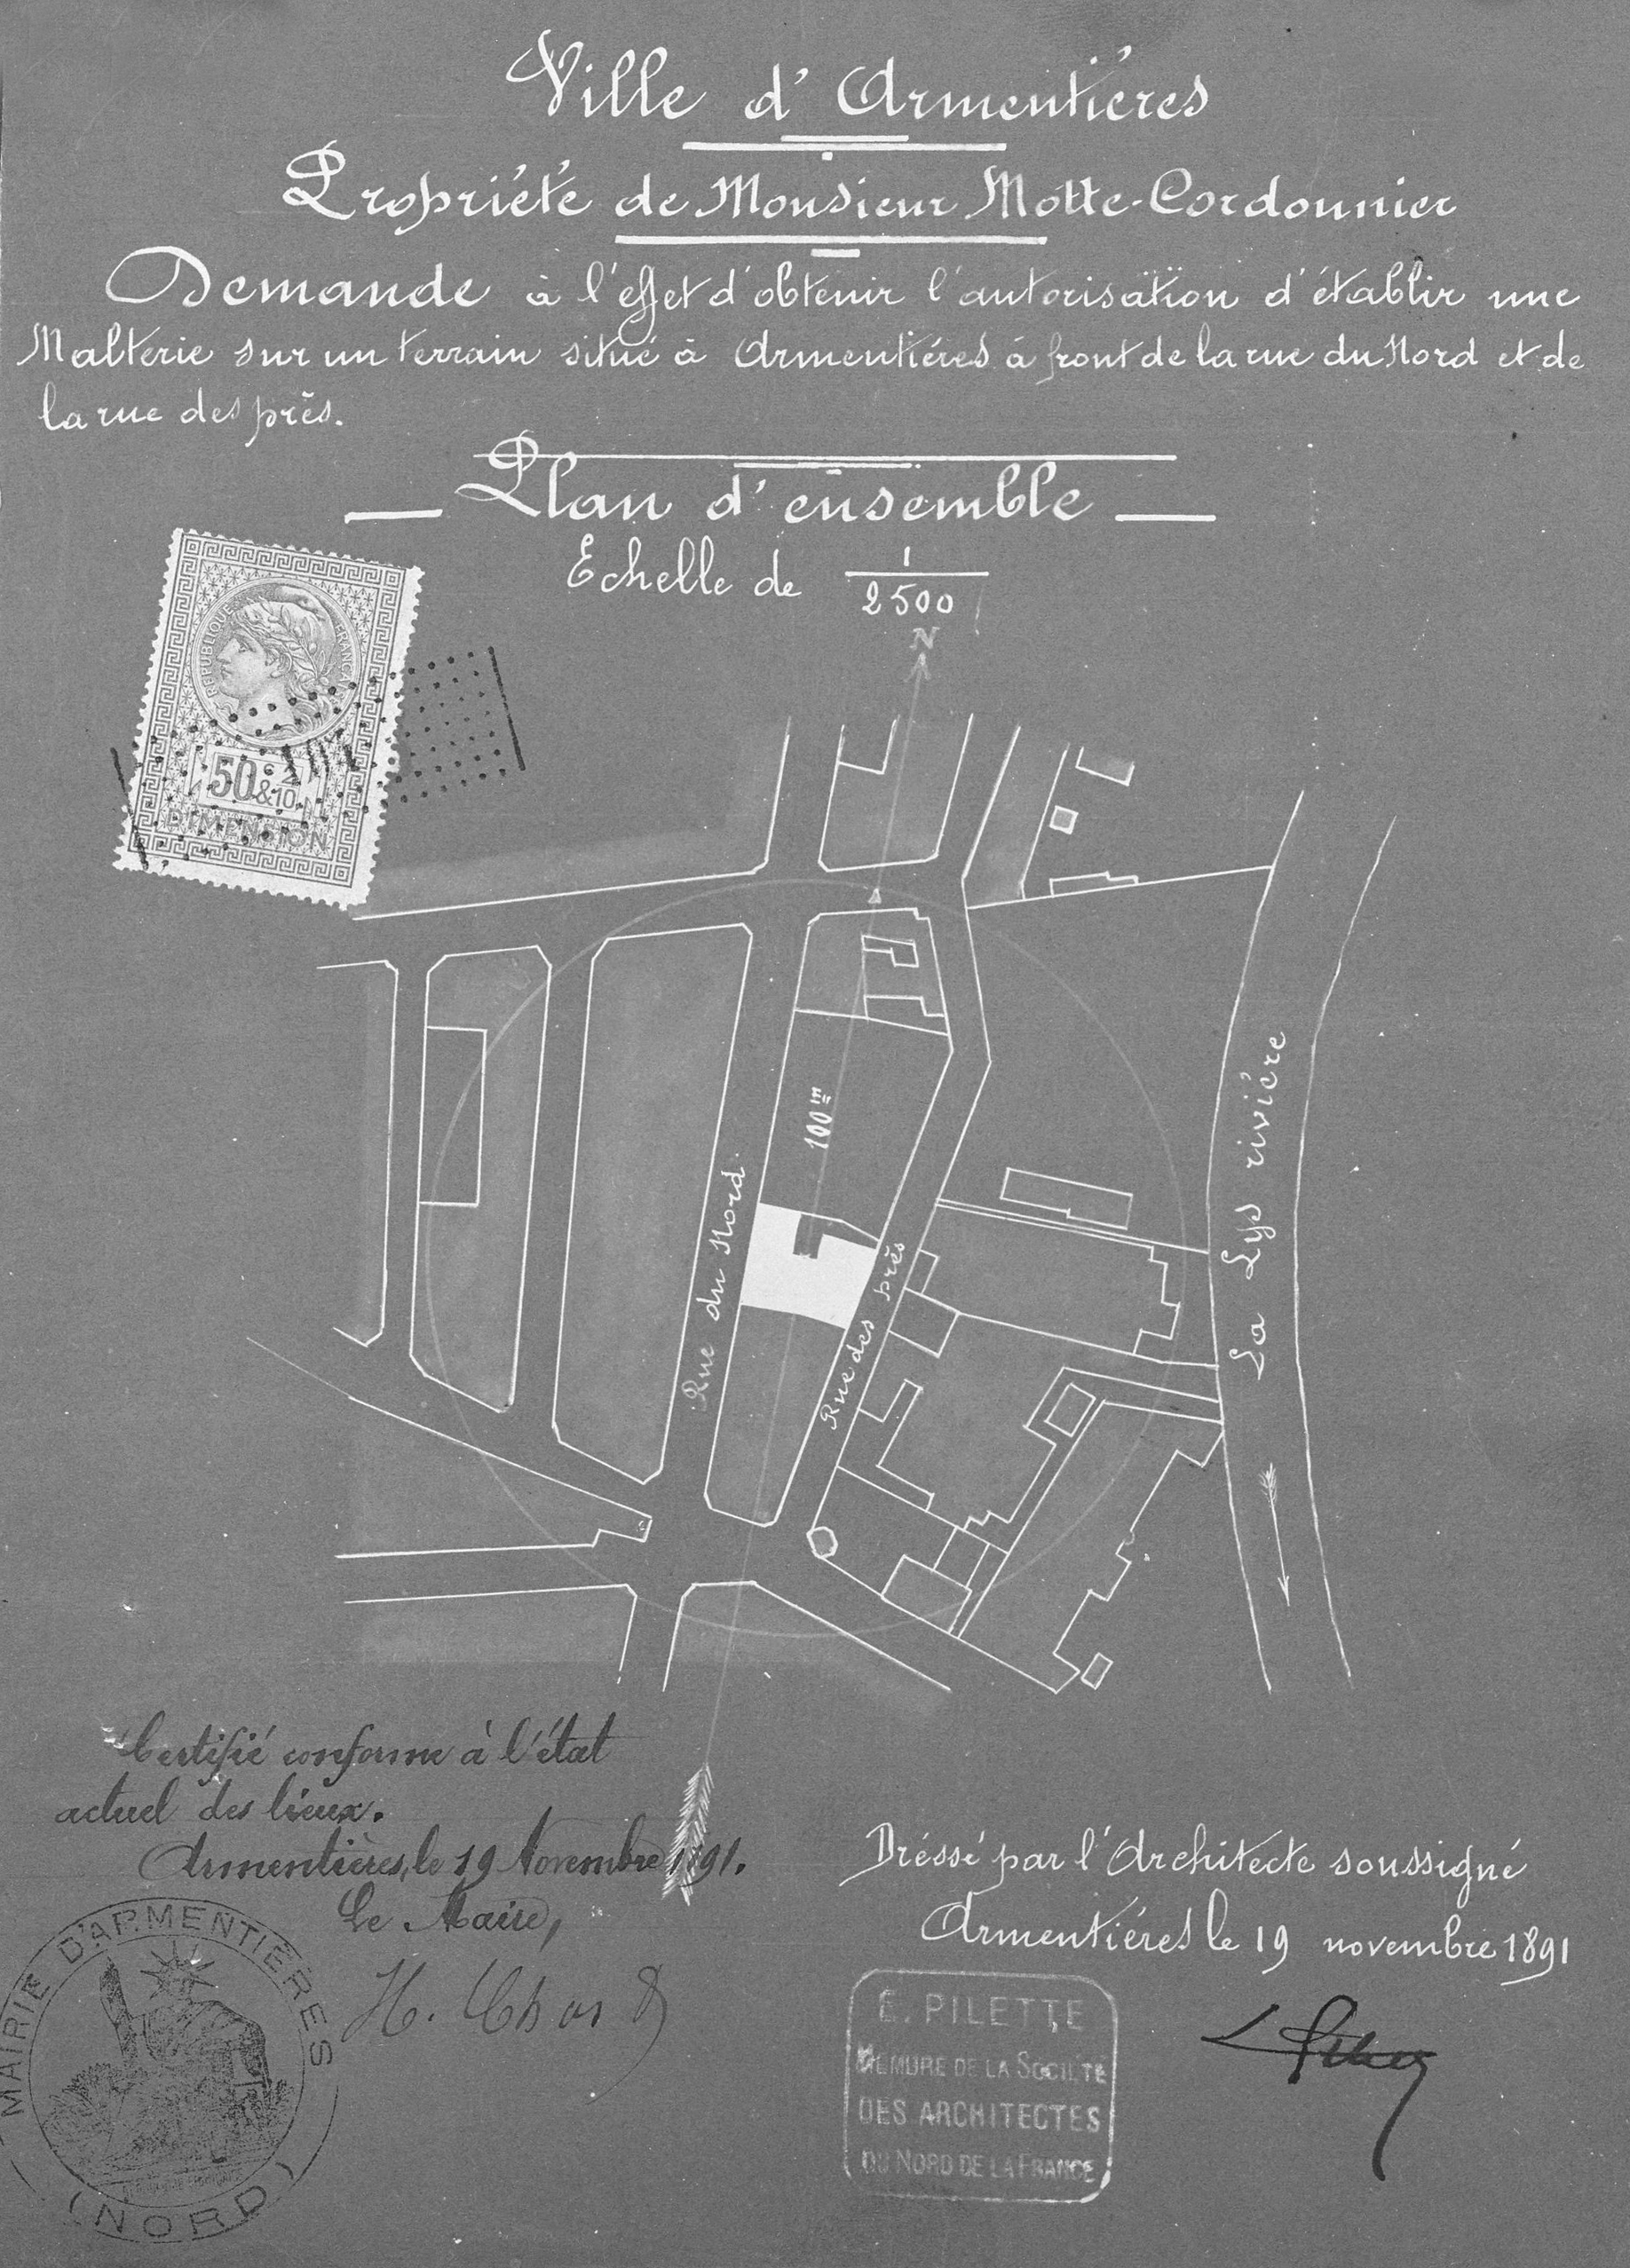 Ville d'Armentiéres
Propriété de Monsieur Motte-Cordonnier
Demande à l'effet d'obtenir l'autorisation d'établir une
Malterie sur un terrain situé à Armentiéres à front de la rue du Nord et de
la rue des près.
Plan d'ensemble
Echelle de 1/2500
REPUBLIQUE FRANCAISE
50c &2/10
DIMENSION
N
100m
Rue du Nord.
Rue des près
La Lys rivière
Certifié conforme à l'état
actuel des lieux.
Armentières, le 19 Novembre 1891.
Le Maire,
MAIRIE D'ARMENTIÈRES
(NORD)
Dréssé par l'Architecte soussigné
Armentiéres le 19 novembre 1891
E. PILETTE
MEMBRE DE LA SOCIÉTÉ
DES ARCHITECTES
DU NORD DE LA FRANCE